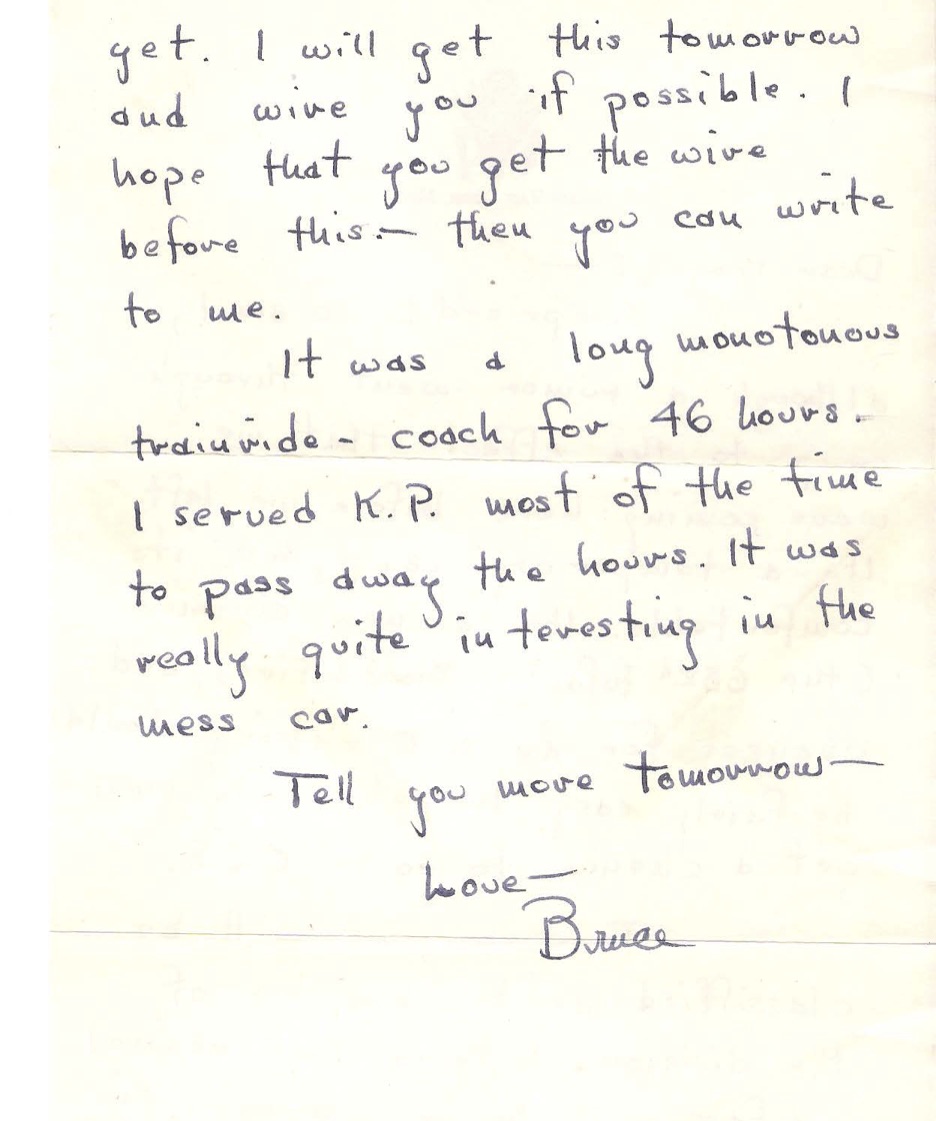 get. I will get this tomorrow
and wire you if possible. I
hope that you get the wire
before this.— then you can write
to me.
It was a long monotonous
trainride - coach for 46 hours.
I served K.P. most of the time
to pass away the hours. It was
really quite interesting in the
mess car.
Tell you more tomorrow—
Love—
Bruce